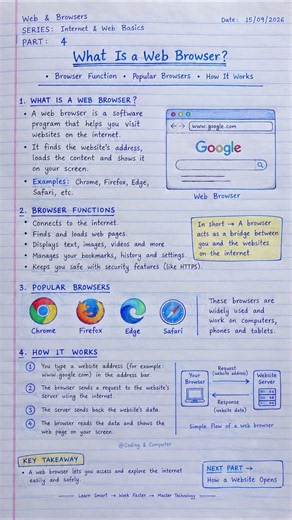 Web & Browsers
Date: 15/09/2026
SERIES: Internet & Web Basics
PART: 4
What Is a Web Browser?
• Browser Function • Popular Browsers • How It Works
1. WHAT IS A WEB BROWSER?
• A web browser is a software
program that helps you visit
websites on the internet.
• It finds the website's address,
loads the content and shows it
on your screen.
• Examples: Chrome, Firefox, Edge,
Safari, etc.
www.google.com
Google
Web Browser
2. BROWSER FUNCTIONS
• Connects to the internet.
• Finds and loads web pages.
• Displays text, images, videos and more.
• Manages your bookmarks, history and settings.
• Keeps you safe with security features (like HTTPS).
In short → A browser
acts as a bridge between
you and the websites
on the internet.
3. POPULAR BROWSERS
Chrome
Firefox
Edge
Safari
These browsers are
widely used and
work on computers,
phones and tablets.
4. HOW IT WORKS
1 You type a website address (for example:
www.google.com) in the address bar.
2 The browser sends a request to the website's
server using the internet.
3 The server sends back the website's data.
4 The browser reads the data and shows the
web page on your screen.
Your
Browser
Request
(website address)
Website
Server
Response
(website data)
Simple flow of a web browser
@Coding & Computer
KEY TAKEAWAY
• A web browser lets you access and explore the internet
easily and safely.
NEXT PART →
How a Website Opens
Learn Smart → Work Faster → Master Technology